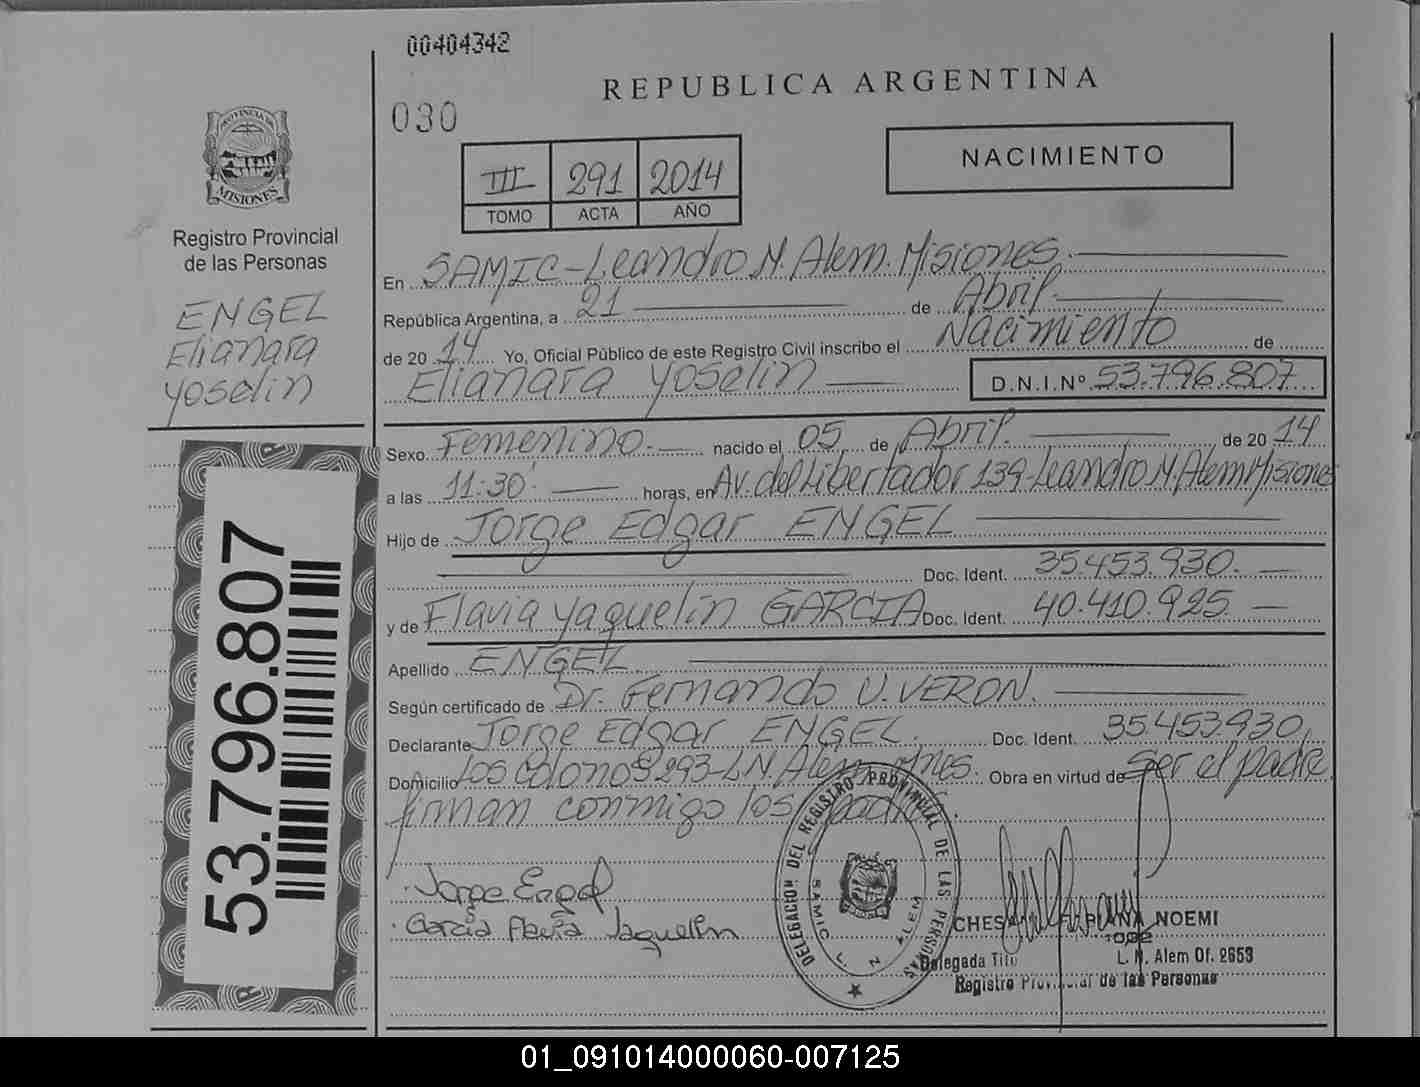 00404342
REPUBLICA ARGENTINA
030
NACIMIENTO
III 291 2014
TOMO ACTA AÑO
PROVINCIA DE MISIONES
Registro Provincial
de las Personas
ENGEL
Elianara
Yoselin
En SAMIC - Leandro N. Alem. Misiones.
República Argentina, a 21 de Abril.
de 2014 Yo, Oficial Público de este Registro Civil inscribo el Nacimiento de
Elianara Yoselin D.N.I.Nº 53.796.807
Sexo Femenino. nacido el 05 de Abril. de 2014
a las 11:30' horas, en Av. del Libertador 139-Leandro N. Alem Misiones
Hijo de Jorge Edgar ENGEL
Doc. Ident. 35.453.930.
y de Flavia Yaquelin GARCIA Doc. Ident. 40.410.925.
Apellido ENGEL
Según certificado de Dr. Fernando U. VERON.
Declarante Jorge Edgar ENGEL. Doc. Ident. 35.453.930.
Domicilio Los Colonos 293-L.N. Alem. Mnes. Obra en virtud de ser el padre
firman conmigo los padres.
Jorge Engel
Garcia Flavia Jaquelin
DELEGACION DEL REGISTRO PROVINCIAL DE LAS PERSONAS
SAMIC L. N. ALEM
NOEMI
Delegada Titu L. N. Alem Of. 2653
Registro Provincial de las Personas
53.796.807
01_091014000060-007125